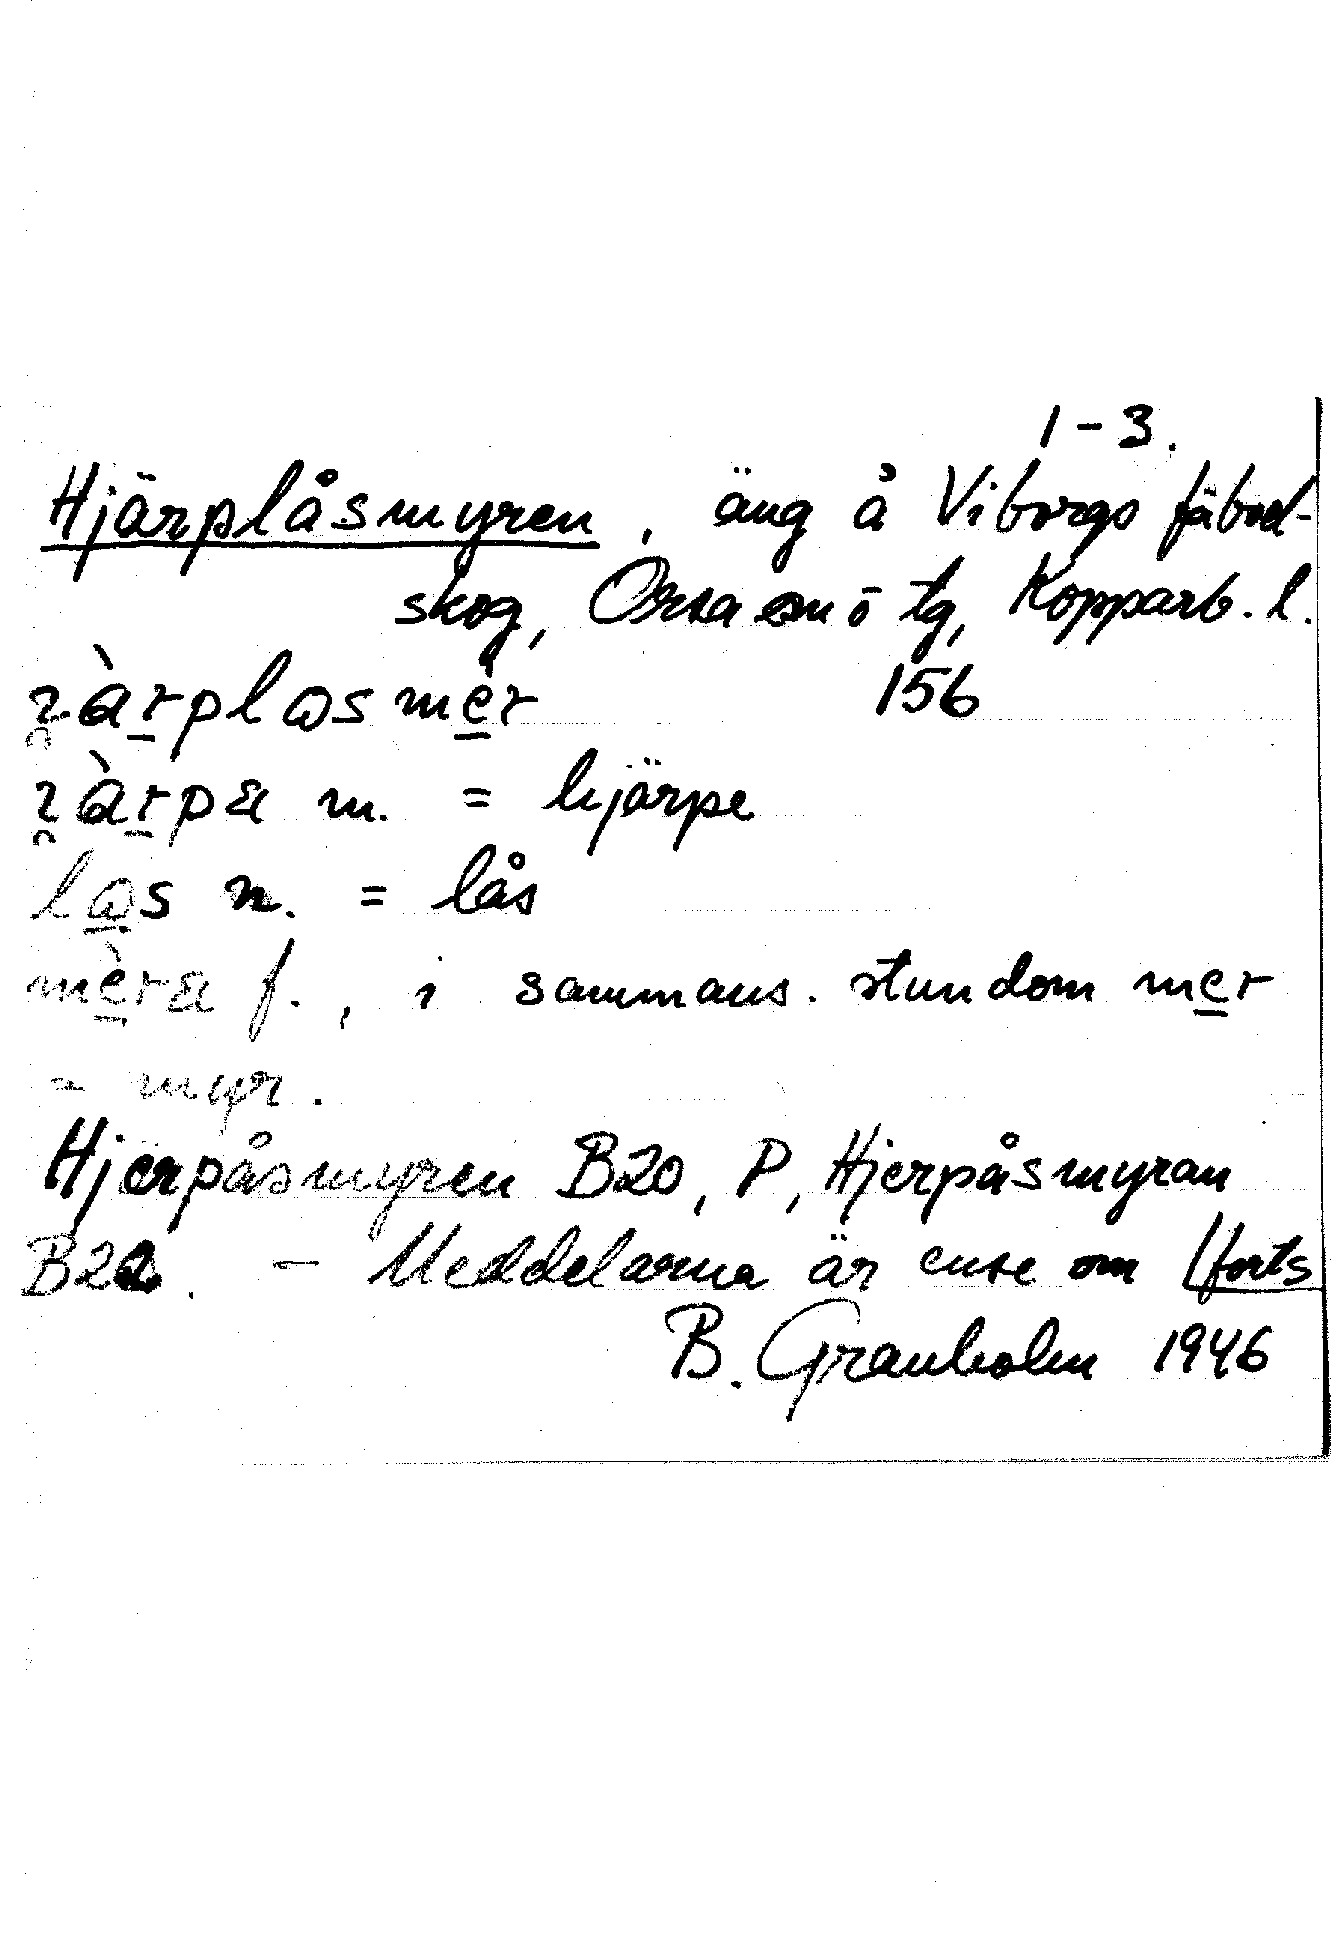 1-3.
Hjärplåsmyren, äng å Viborgs fäbod-
skog, Orsa sn ö tg, Kopparb. l.
156
m. = hjärpe
n. = lås
f., i sammans. stundom mer
= myr.
Hjerpåsmyren B20, P, Hjerpåsmyran
B22. — Meddelarna är ense om (forts
B. Granholm 1946